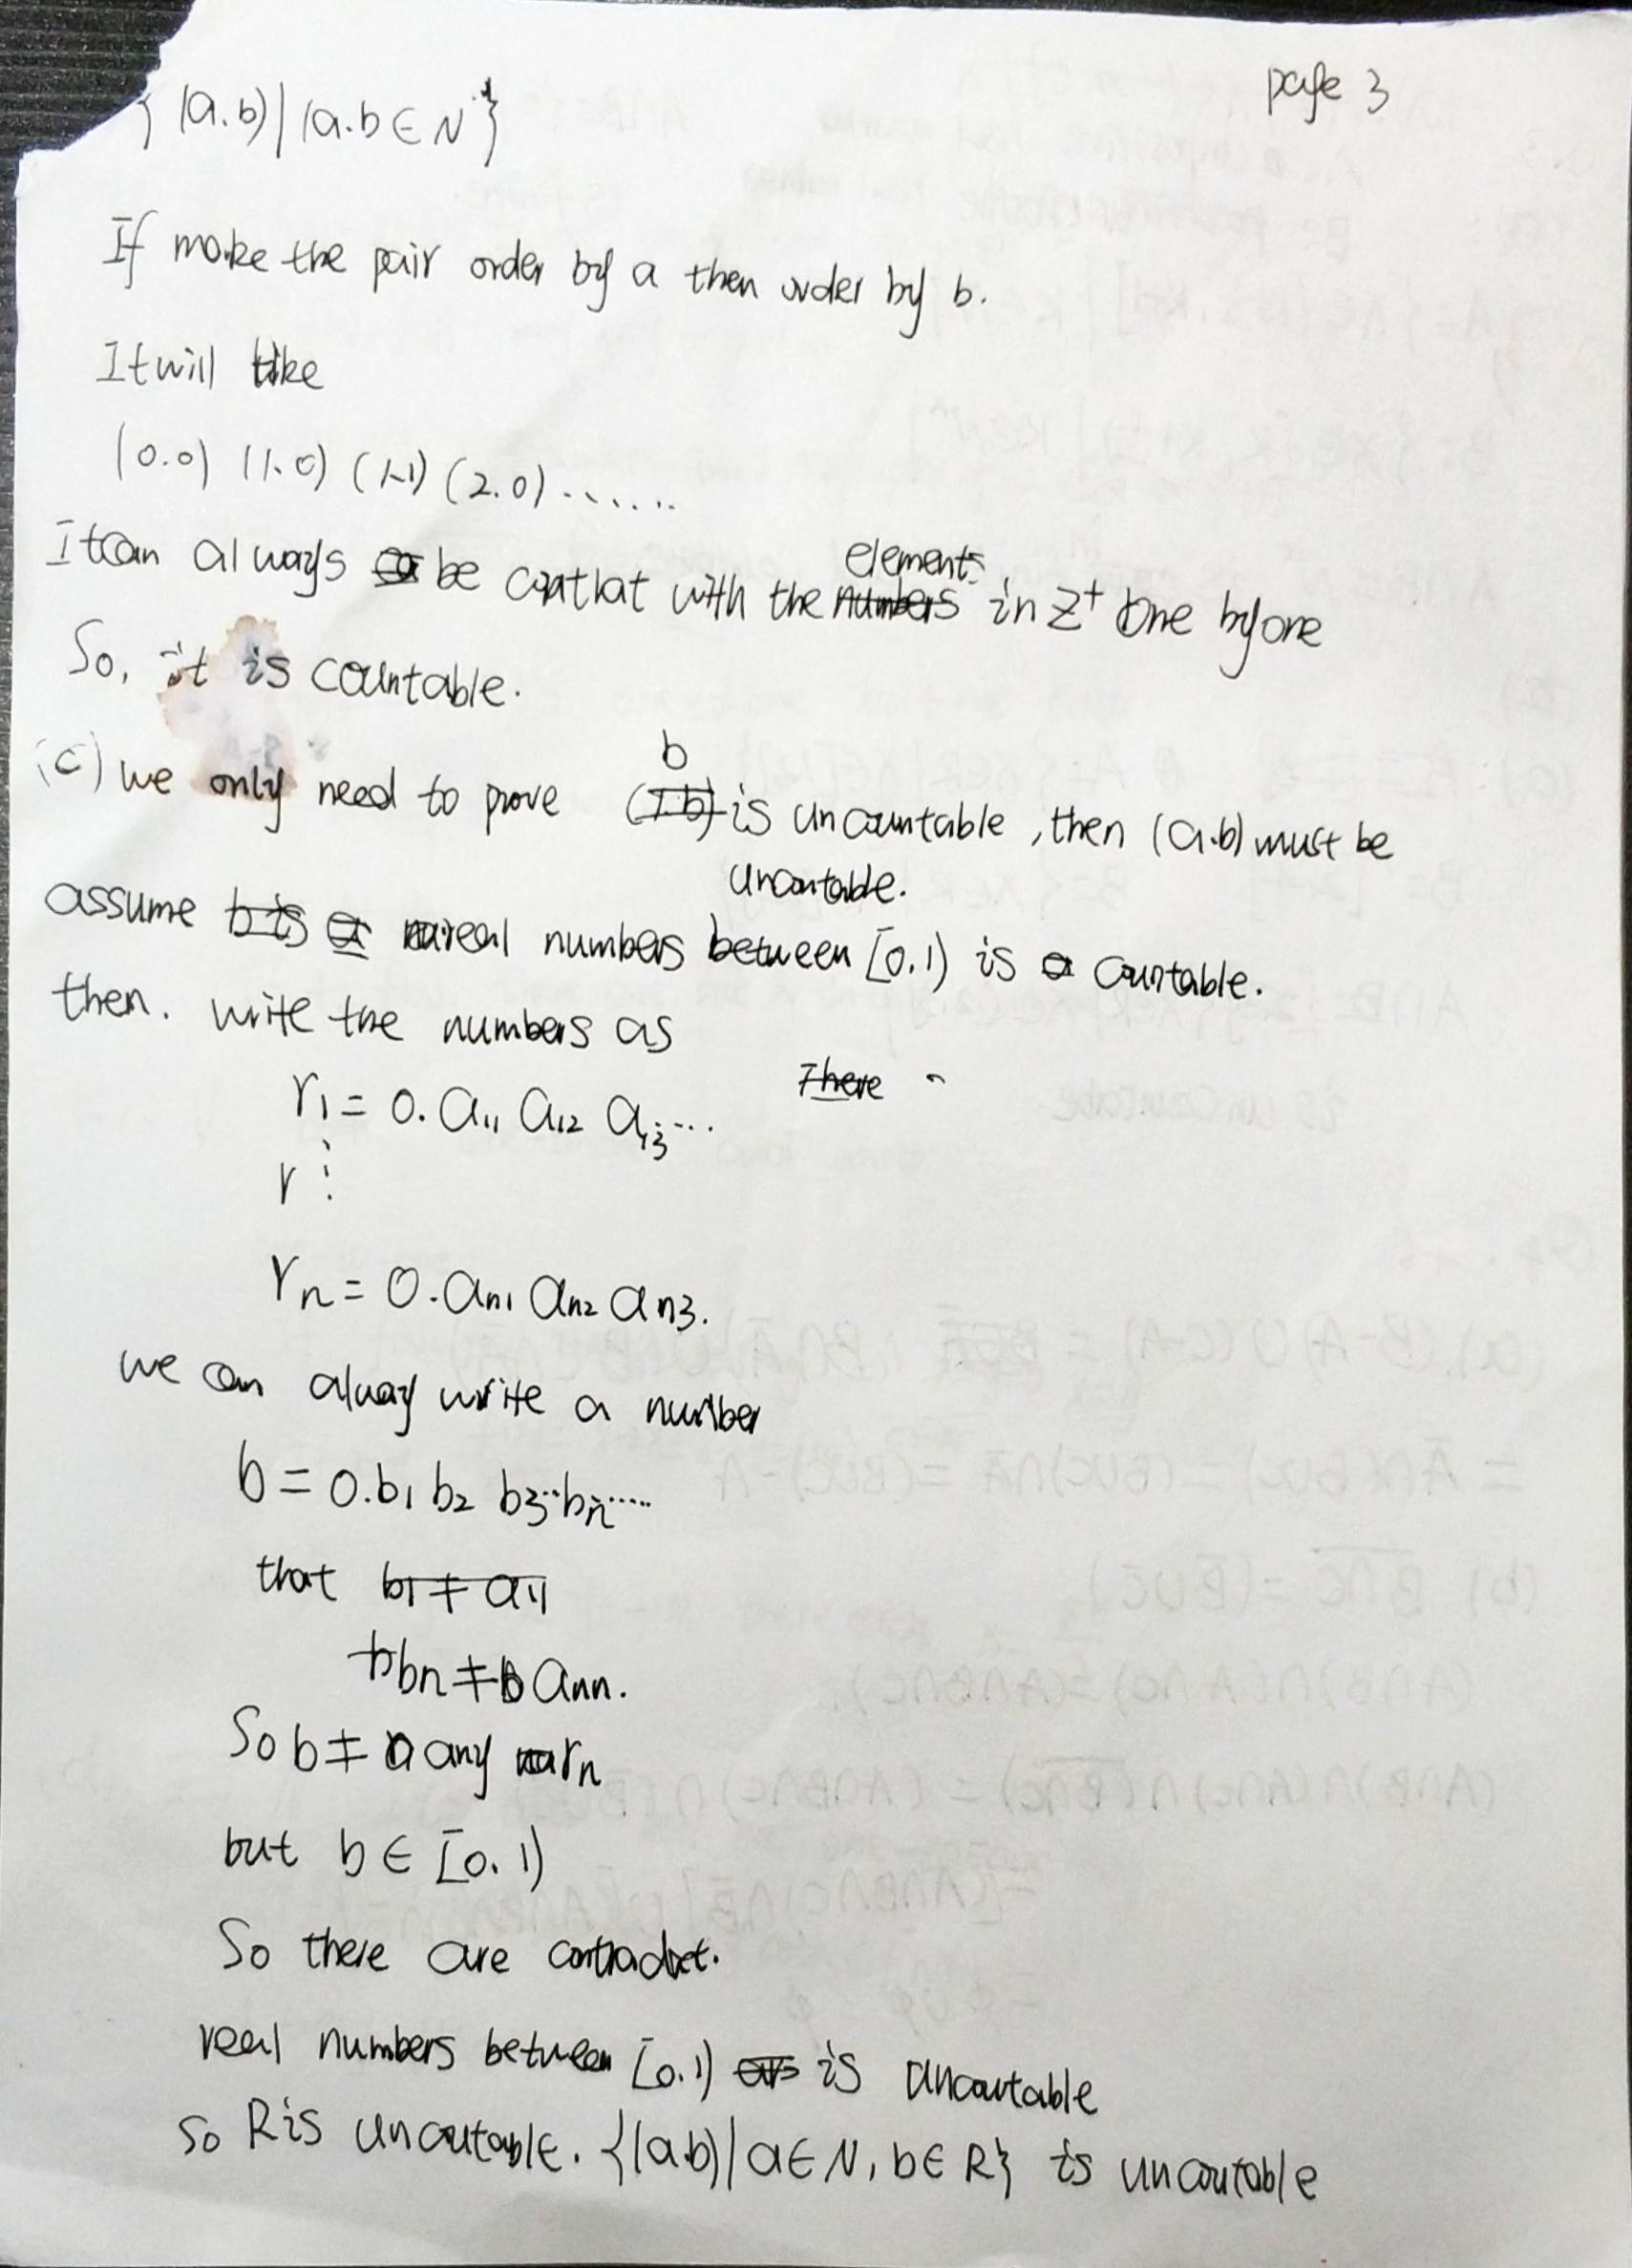 page 3
{ (a.b) | (a.b ∈ N }
If make the pair order by a then order by b.
It will like
(0.0) (1.0) (1.1) (2.0) ......
elements
It can always be with the numbers in Z⁺ one by one
So, it is countable.
b
(c) we only need to prove (1.b) is uncountable, then (a.b) must be
uncontable.
assume b is a real numbers between [0,1) is a countable.
then. write the numbers as
There
r₁ = 0. a₁₁ a₁₂ a₁₃...
r ⋮
rₙ = 0. aₙ₁ aₙ₂ aₙ₃.
we can alway write a number
b = 0.b₁ b₂ b₃..bₙ.....
that b₁ ≠ a₁₁
bₙ ≠ aₙₙ.
So b ≠ any rₙ
but b ∈ [0. 1)
So there are contradict.
real numbers between [0.1) is uncoutable
So R is uncoutable. {(a.b) | a ∈ N, b ∈ R} is uncoutable